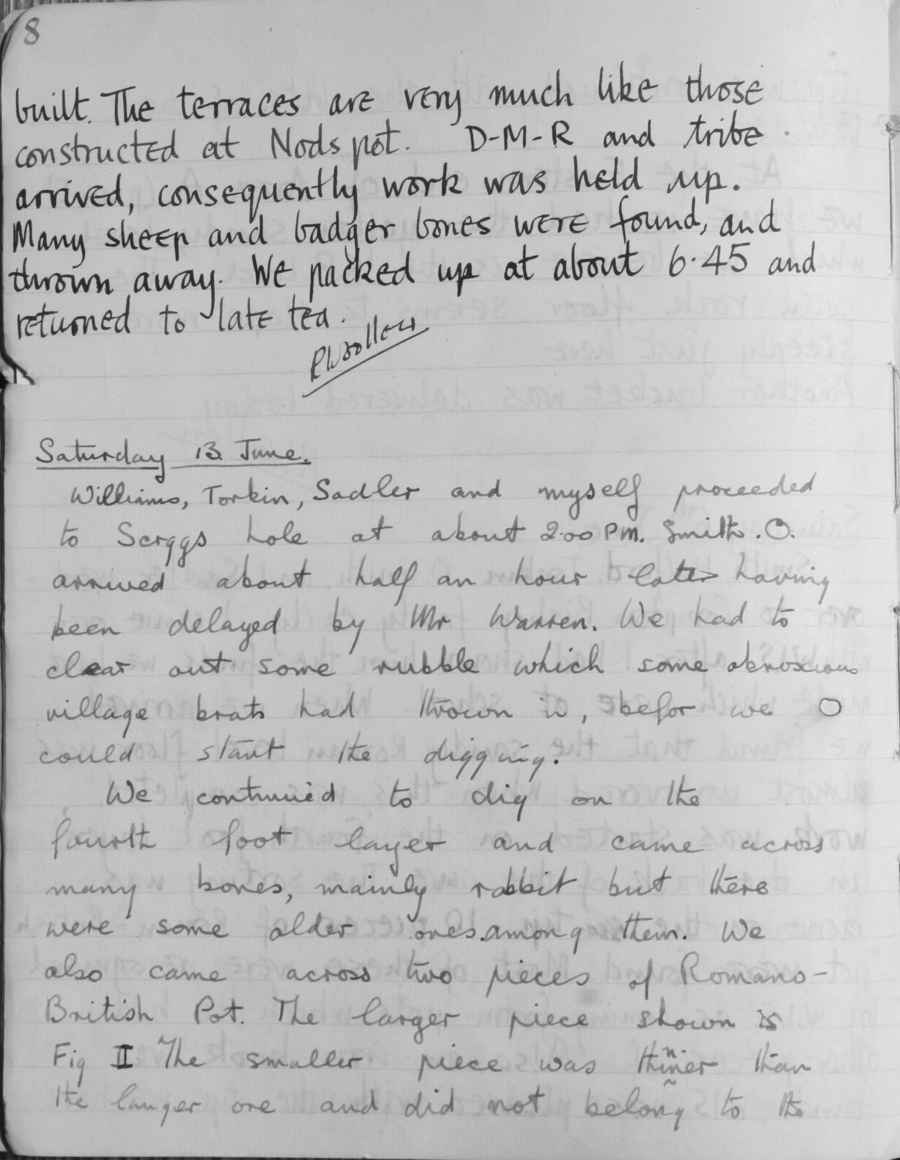 8
built. The terraces are very much like those
constructed at Nods pot. D-M-R and tribe.
arrived, consequently work was held up.
Many sheep and badger bones were found, and
thrown away. We packed up at about 6.45 and
returned to late tea.
PWoollen
Saturday 13 June.
Williams, Torkin, Sadler and myself proceeded
to Scryggs hole at about 2.00 PM. Smith. O.
arrived about half an hour later having
been delayed by Mr Warren. We had to
clear out some rubble which some obnoxious
village brats had thrown in, befor we
could start the digging.
We continued to dig on the
fourth foot layer and came across
many bones, mainly rabbit but there
were some older ones among them. We
also came across two pieces of Romano-
British Pot. The larger piece shown is
Fig II The smaller piece was thinner than
the larger one and did not belong to the